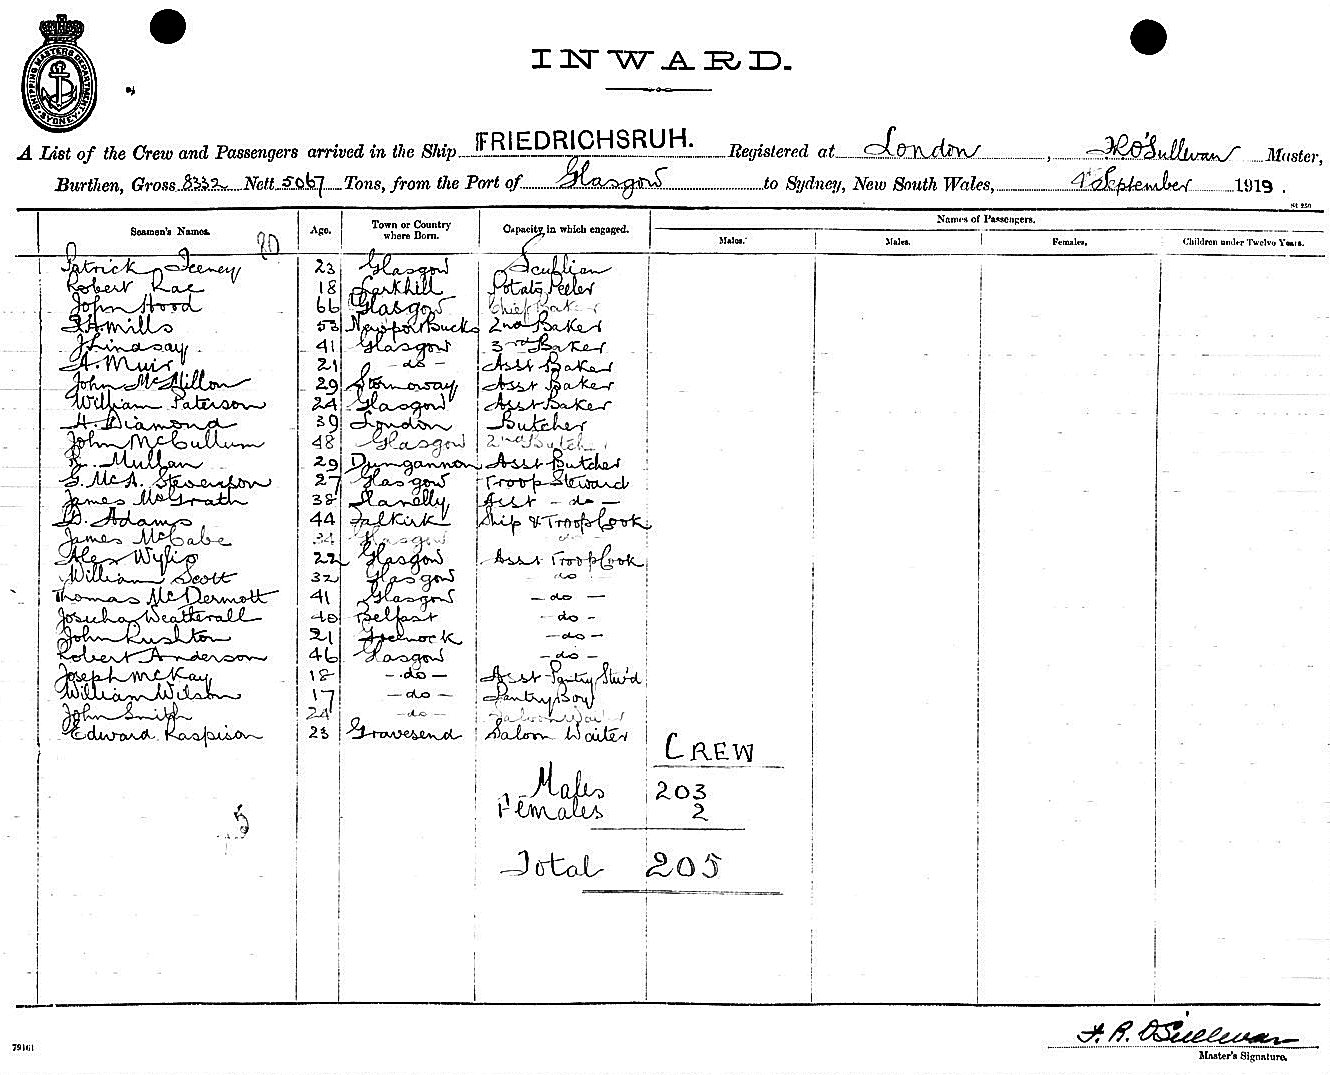 SHIPPING MASTERS DEPARTMENT SYDNEY
INWARD.
A List of the Crew and Passengers arrived in the Ship FRIEDRICHSRUH. Registered at London, F R O'Sullivan Master,
Burthen, Gross 8332 Nett 5067 Tons, from the Port of Glasgow to Sydney, New South Wales, September 1919.
St 250
Seamen's Names. Age. Town or Country where Born. Capacity in which engaged. Names of Passengers.
Males. Males. Females. Children under Twelve Years.
20
Patrick Feeney 23 Glasgow Scullian
Robert Rae 18 Larkhill Potato Peeler
John Hood 66 Glasgow Chief Baker
Mills 53 Newport Bucks 2nd Baker
J Lindsay 41 Glasgow 3rd Baker
A. Muir 21 - do - Asst Baker
John McMillon 29 Stornoway Asst Baker
William Paterson 24 Glasgow Asst Baker
H. Diamond 39 London Butcher
John McCullum 48 Glasgow 2nd Butcher
R. Mullan 29 Dungannon Asst Butcher
G. McA. Stevenson 27 Glasgow Troop Steward
James McGrath 38 Llanelly Asst - do -
D. Adams 44 Falkirk Ship & Troop Cook
James McCabe 34 Glasgow do
Alex Wylie 22 Glasgow Asst Troop Cook
William Scott 32 Glasgow do
Thomas McDermott 41 Glasgow - do -
Weatherall 40 Belfast - do -
John Rushton 21 Greenock - do -
Robert Anderson 46 Glasgow - do -
Joseph McKay 18 - do - Asst Pantry Stw'd
William Wilson 17 - do - Pantry Boy
John Smith 24 - do - Saloon Waiter
Edward Raspison 23 Gravesend Saloon Waiter
CREW
Males 203
Females 2
Total 205
F. R. O'Sullivan
Master's Signature.
79161